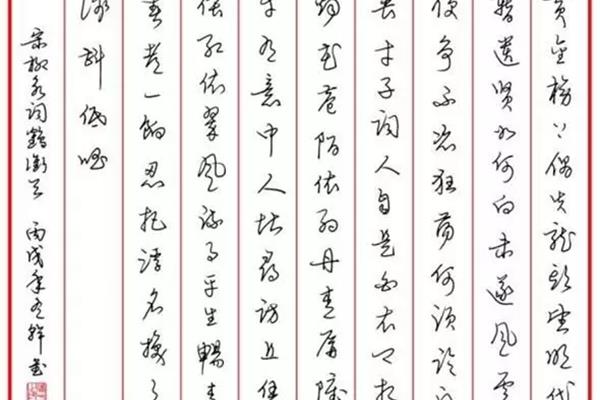 黄金榜上偶失龙头望明代
暂遗贤如何向未遂风云
便争不恣狂荡何须论得
丧才子词人自是白衣卿相
烟花巷陌依约丹青屏障
幸有意中人堪寻访且恁
偎红依翠风流事平生畅青
春都一饷忍把浮名换了
浅斟低唱
宋柳永词鹤冲天 丙戌年书